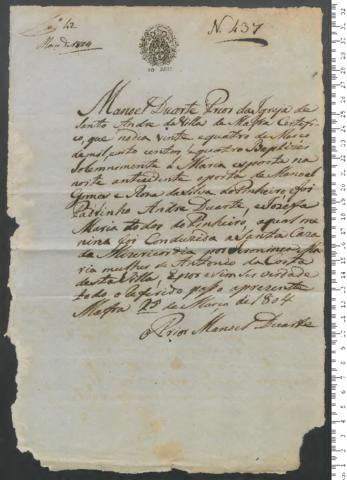 Nº 437
Manoel Duarte Prior da Igreja de
Santo Andre da Villa de Mafra Certefi-
co, que no dia vinte e quatro de Março
de mil, outo centos, e quatro Baptizei
Solemnemente a Maria exposta na
noite antecedente á porta de Manoel
Gomes e Roza da Silva do Pinheiro, e foi
Padrinho Andre Duarte e Jozefa
Maria todos do Pinheiro, a qual me
nina foi Conduzida á Santa Caza
da Misericordia por
ria mulher de Antonio da Costa
desta Villa, e por assim ser verdade
todo o referido passo a prezente
Mafra 25 de Março de 1804
O Prior Manoel Duarte